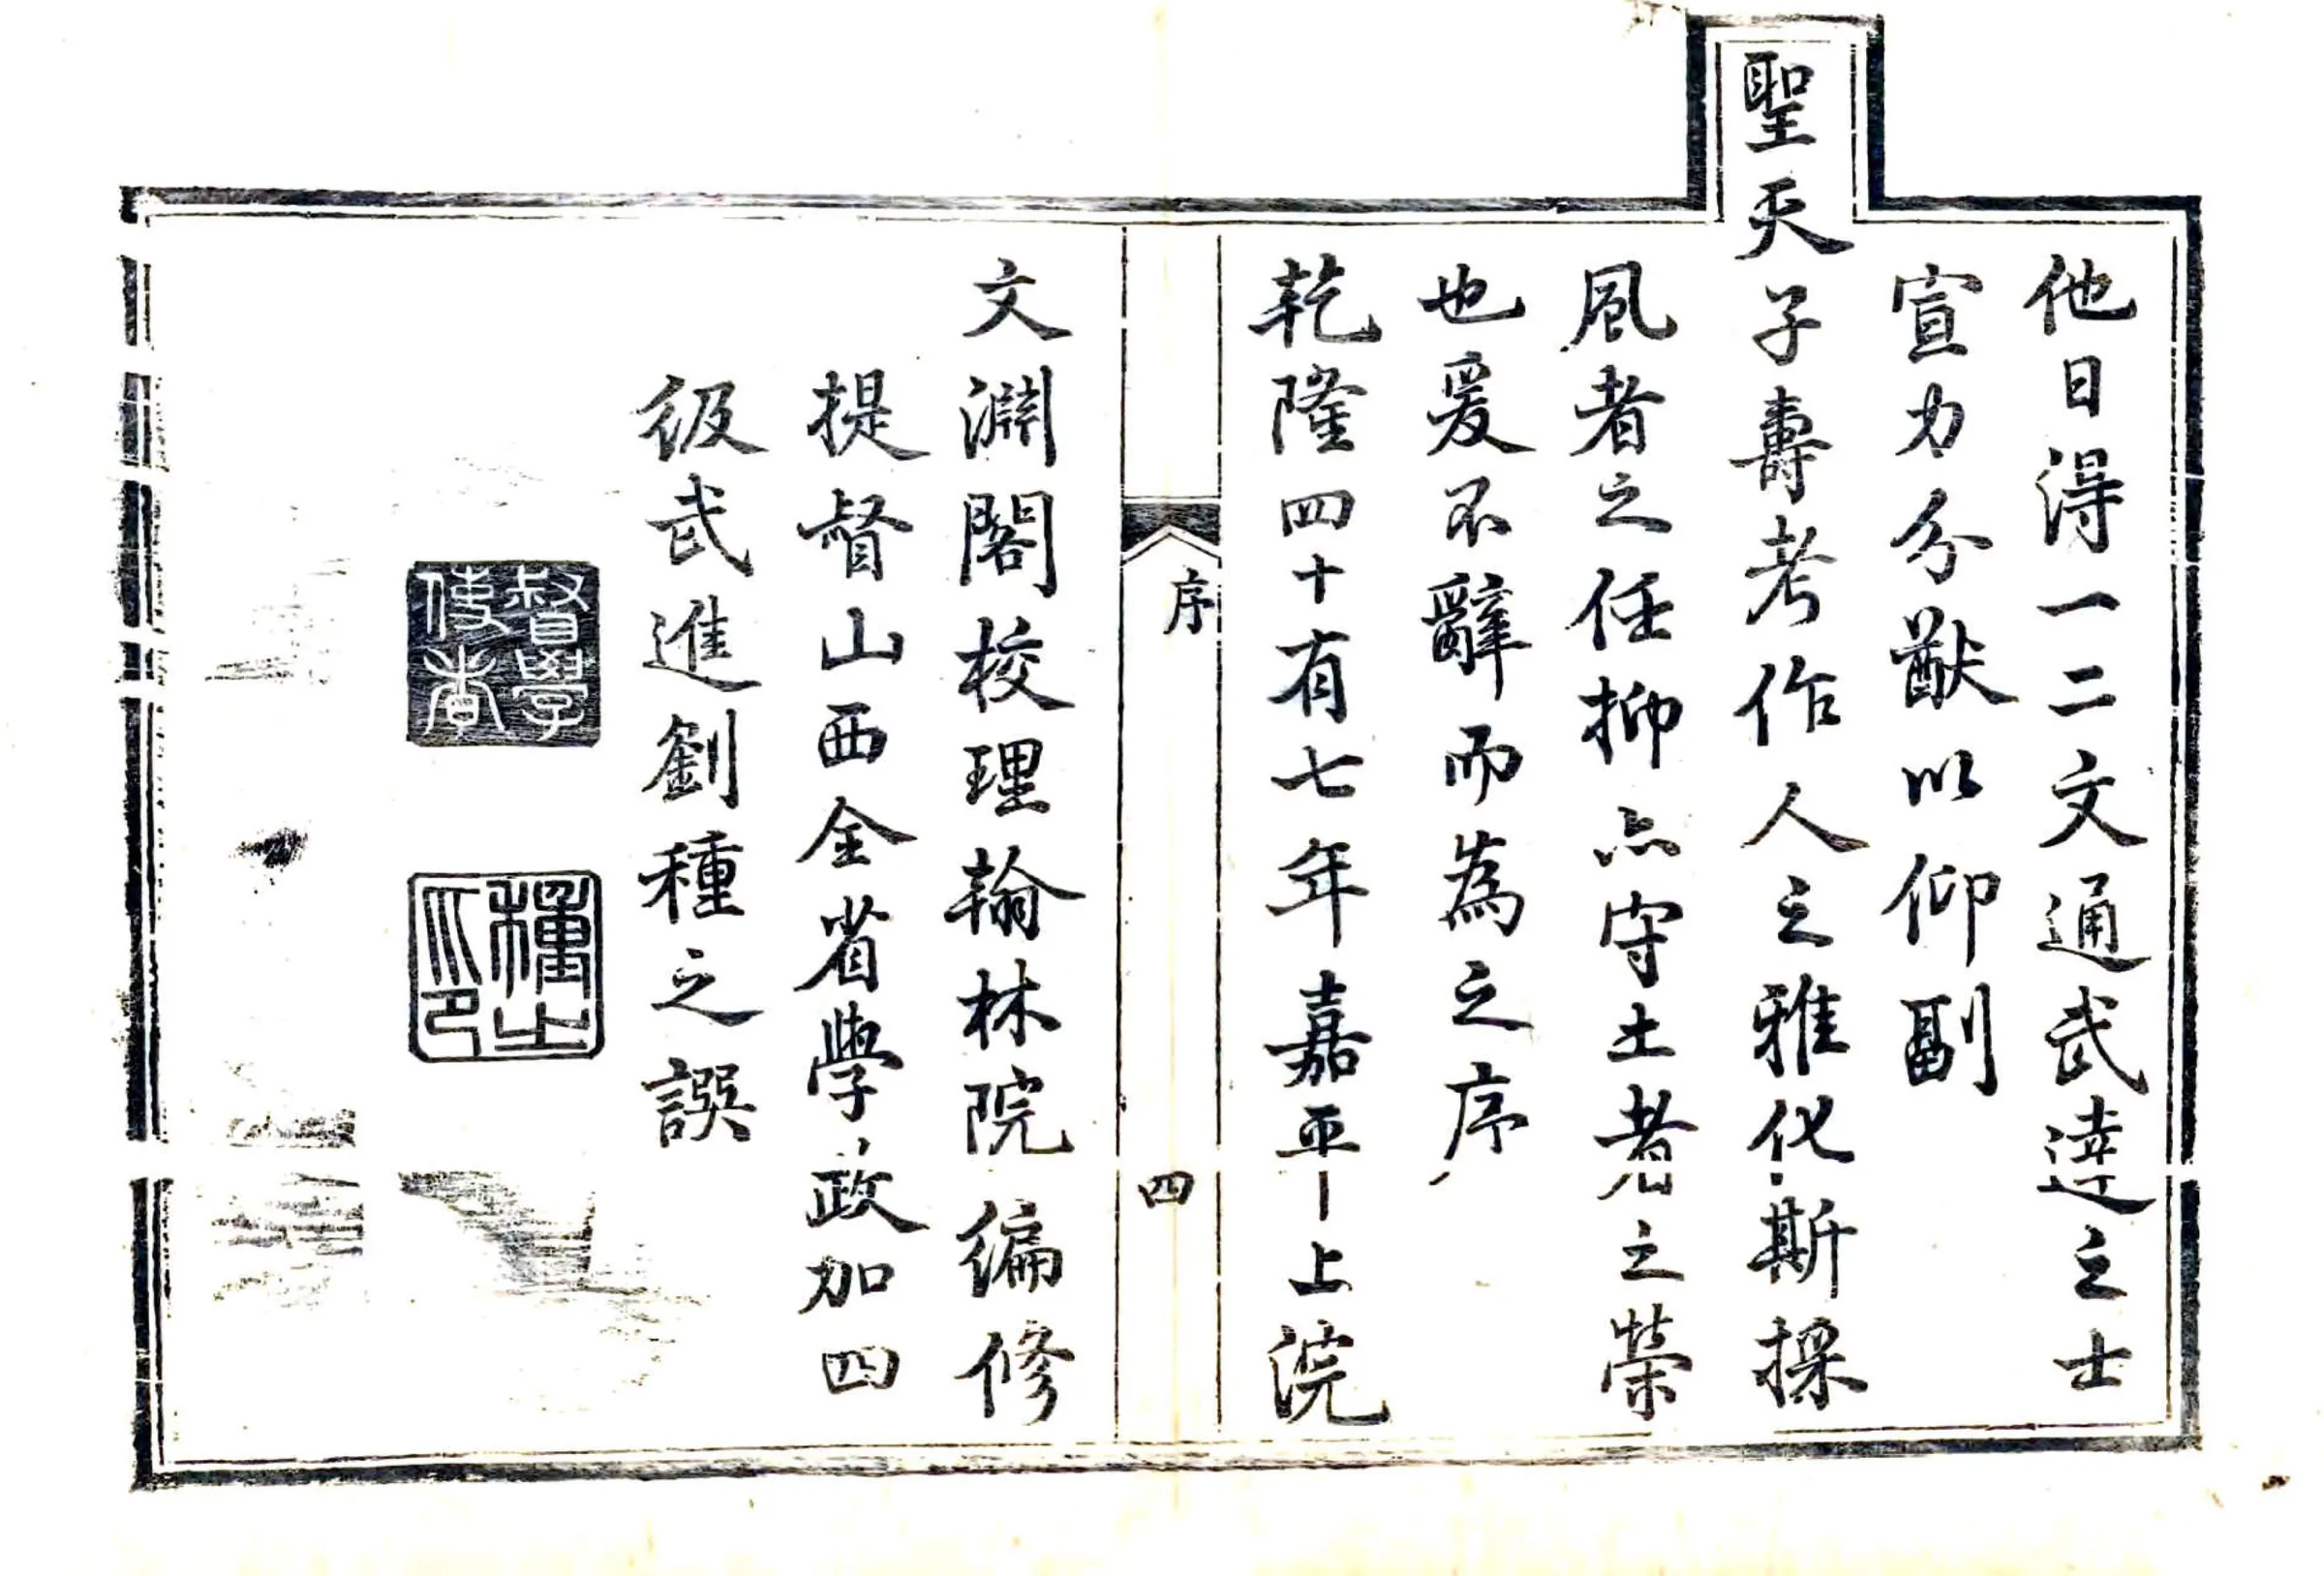 他日淂一二文通武達之士
宣力分猷以仰副
聖天子壽考作人之雅化斯採
風者之任抑亦守土者之榮
也爰不辭而為之序
乾隆四十有七年嘉平上浣
序
四
文淵閣校理翰林院編修
提督山西全省學政加四
級武進劉種之譔
督學使者
種之印